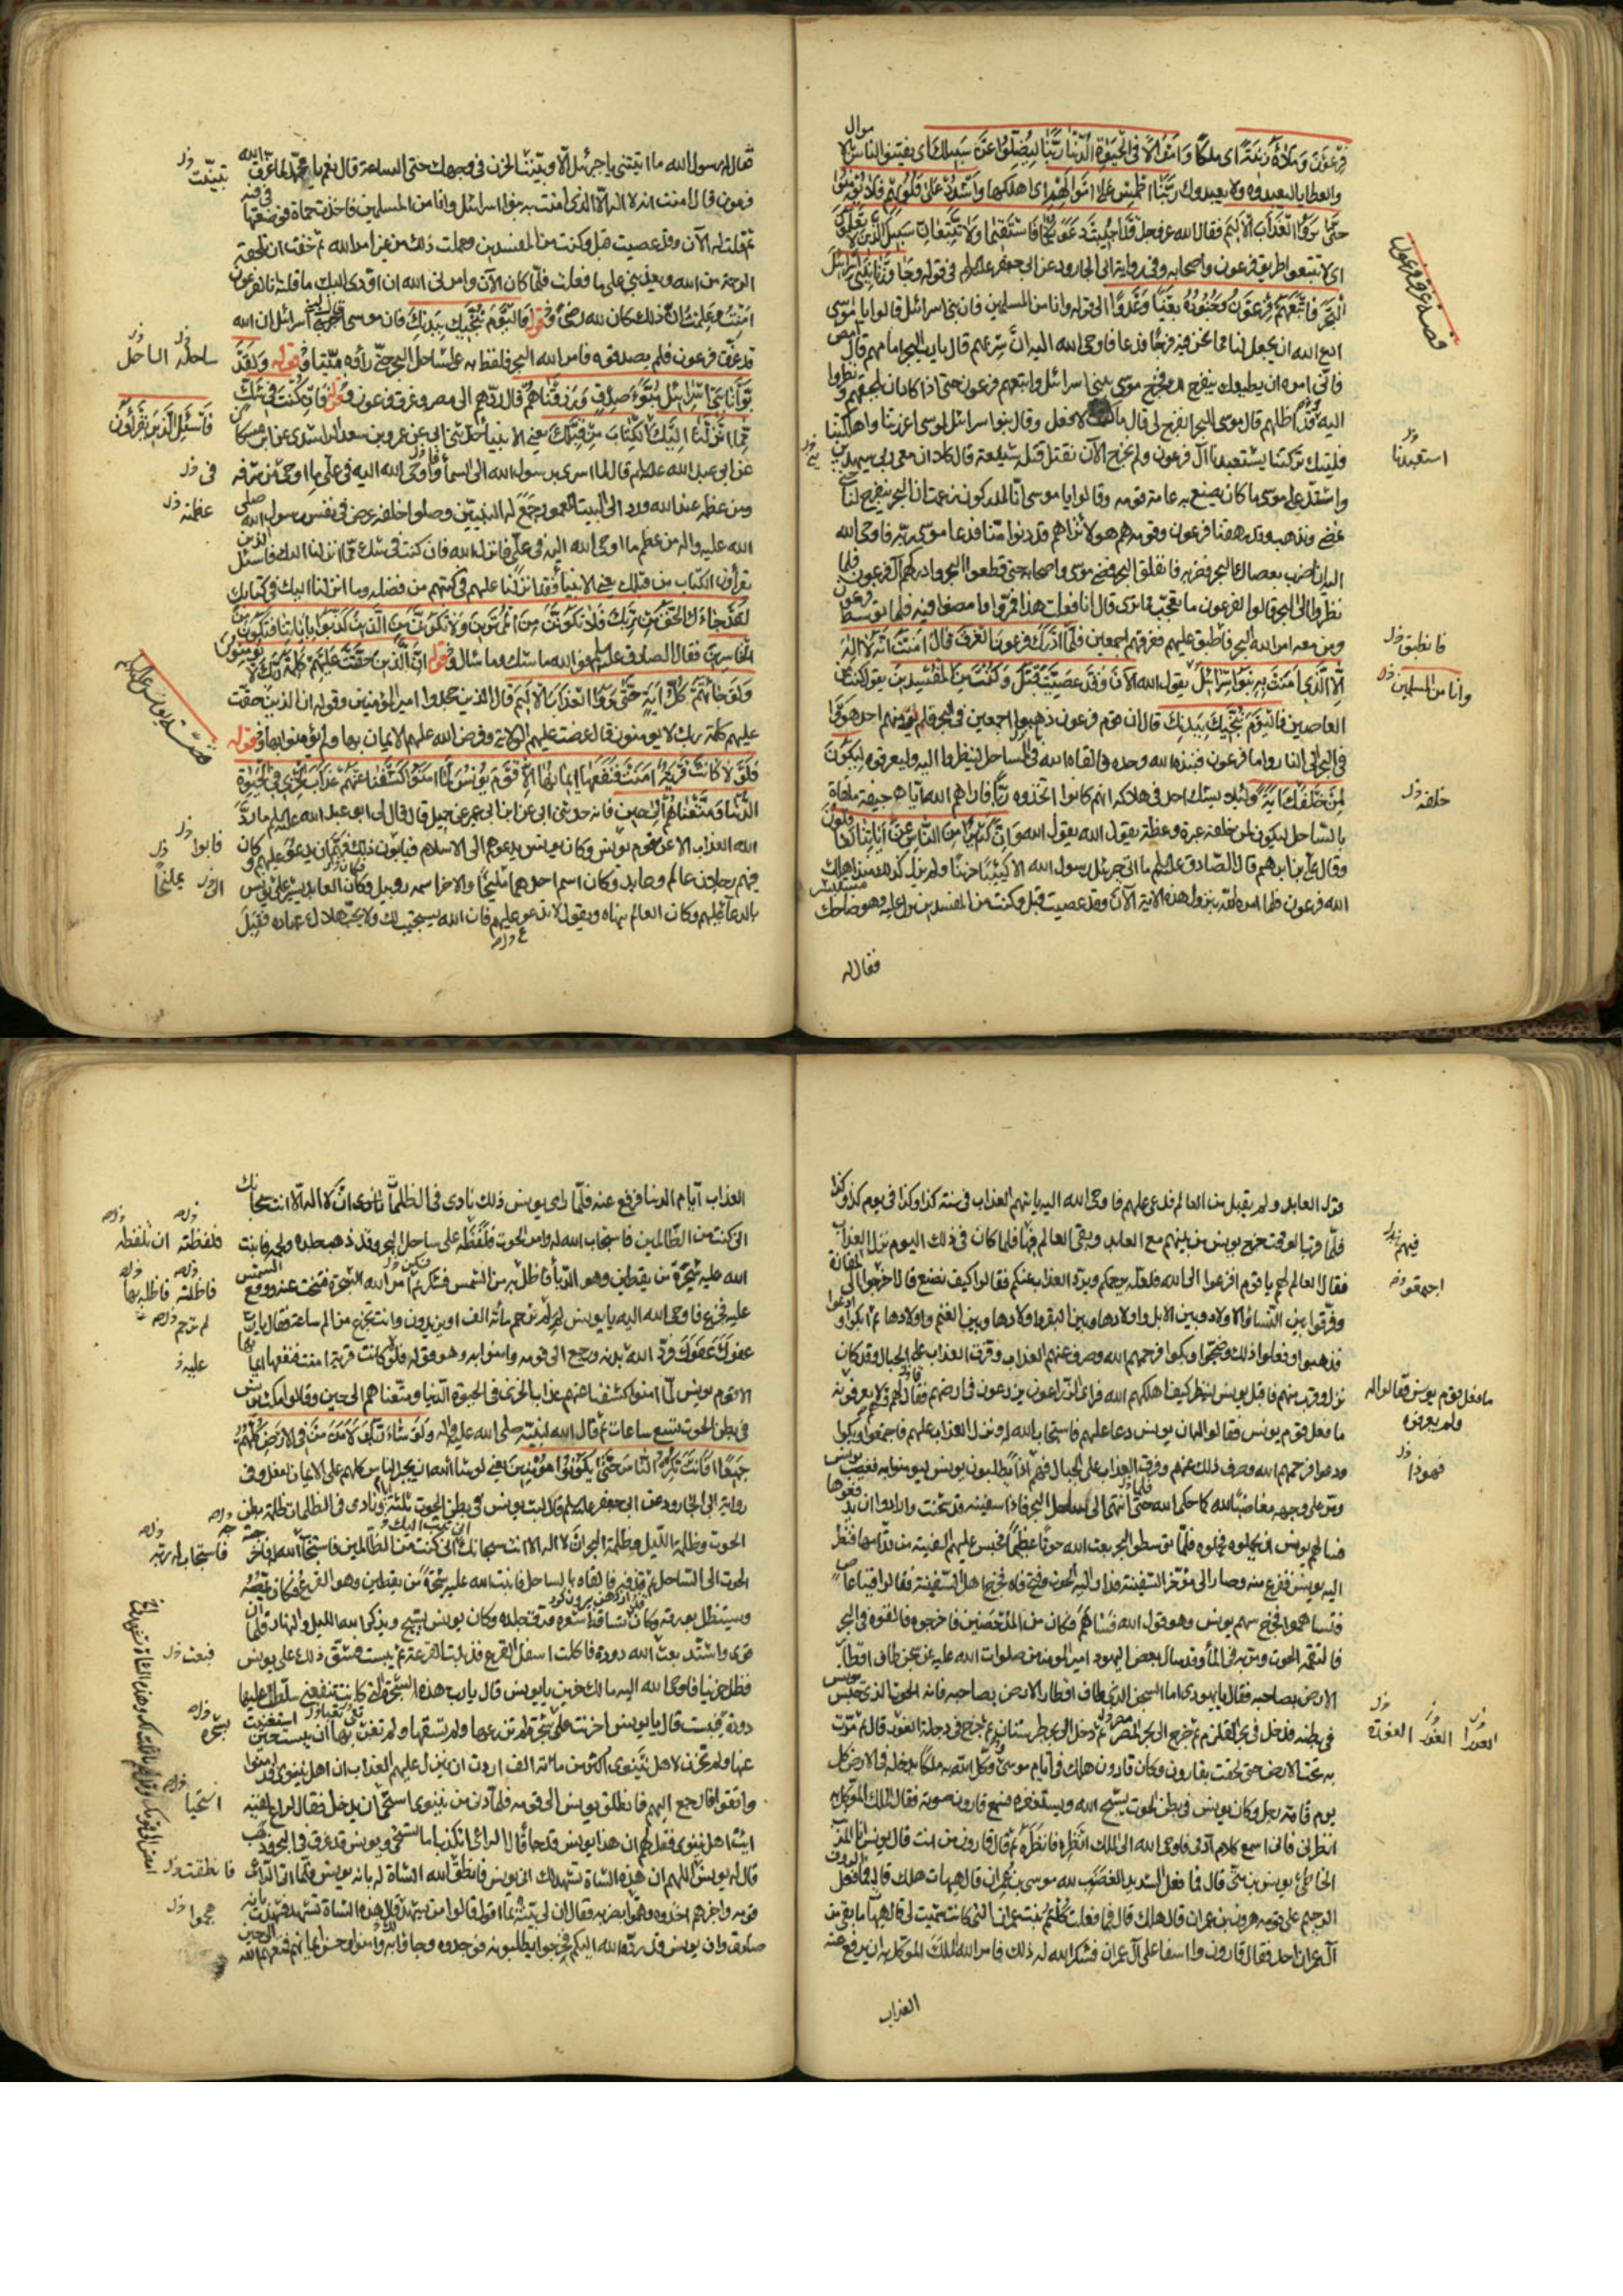 فِرْعَوْنَ وَمَلَأَهُ زِينَةً اى ملكا وَأَمْوَالًا فِي الْحَيَوةِ الدُّنْيَا رَبَّنَا لِيُضِلُّوا عَنْ سَبِيلِكَ اى يفتنوا الناس بالاموال
والعطايا ليعبدوه ولا يعبدوك رَبَّنَا اطْمِسْ عَلَى أَمْوَالِهِمْ اى اهلكها وَاشْدُدْ عَلَى قُلُوبِهِمْ فَلَا يُؤْمِنُوا
حَتَّى يَرَوُا الْعَذَابَ الْأَلِيمَ فقال الله عز وجل قَدْ أُجِيبَتْ دَعْوَتُكُمَا فَاسْتَقِيمَا وَلَا تَتَّبِعَانِّ سَبِيلَ الَّذِينَ لَا يَعْلَمُونَ
اى لا تتبعوا طريق فرعون واصحابه وفى رواية ابى الجارود عن ابى جعفر عليه السلم فى قوله وَجَاوَزْنَا بِبَنِي إِسْرَائِيلَ
الْبَحْرَ فَأَتْبَعَهُمْ فِرْعَوْنُ وَجُنُودُهُ بَغْيًا وَعَدْوًا الى قوله وانا من المسلمين فان بنى اسرائيل قالوا يا موسى
ادع الله ان يجعل لنا مما نحن فيه فرجا فدعا فاوحى الله اليه ان سر بهم قال يا رب البحر امامهم قال
امض فانى امره ان يطيعك وينفرج لك فخرج موسى ببنى اسرائيل واتبعهم فرعون حتى اذا كاد ان يلحقهم ونظروا
اليه وقد اظلهم قال موسى للبحر انفرج لى قال ما كنت لافعل وقال بنو اسرائيل لموسى غررتنا واهلكتنا
فليتك تركتنا يستعبدنا آل فرعون ولم نخرج الآن نقتل قتلة شنيعة قال كلا ان معى ربى سيهدين
واشتد على موسى ما كان يصنع به عامة قومه وقالوا يا موسى انا لمدركون زعمت ان البحر ينفرج لنا حتى
نمضى ونذهب وقد رهقنا فرعون وقومه هم هولاء نراهم قد دنوا منا فدعا موسى ربه فاوحى الله
اليه ان اضرب بعصاك البحر فضربه فانفلق البحر فمضى موسى واصحابه حتى قطعوا البحر وادركهم آل فرعون فلما
نظروا الى البحر قالوا لفرعون ما تعجب مما ترى قال انا فعلت هذا فمروا فامضوا فيه فلما توسط فرعون
ومن معه امر الله البحر فاطبق عليهم فغرقهم اجمعين فلما أَدْرَكَ فرعون الْغَرَقُ قَالَ آمَنْتُ أَنَّهُ لَا إِلَهَ
إِلَّا الَّذِي آمَنَتْ بِهِ بَنُو إِسْرَائِيلَ يقول الله آلْآنَ وَقَدْ عَصَيْتَ قَبْلُ وَكُنْتَ مِنَ الْمُفْسِدِينَ يقول كنت من
العاصين فَالْيَوْمَ نُنَجِّيكَ بِبَدَنِكَ قال ان قوم فرعون ذهبوا اجمعين فى البحر فلم يرد منهم احد هووا
فى البحر الى النار واما فرعون فنبذه الله وحده فالقاه الله فى الساحل لينظروا اليه وليعرفوه لِتَكُونَ
لِمَنْ خَلْفَكَ آيَةً ولئلا يشك احد فى هلاكه انهم كانوا اتخذوه ربا فاراهم الله اياه جيفة ملقاة
بالساحل ليكون لمن خلفه عبرة وعظة يقول الله وَإِنَّ كَثِيرًا مِنَ النَّاسِ عَنْ آيَاتِنَا لَغَافِلُونَ
وقال على بن ابراهيم قال الصادق عليه السلم ما اتى جبرئيل رسول الله الا كئيبا حزينا ولم يزل كذلك منذ اهلك
الله فرعون فلما امره الله بنزول هذه الآية آلآن وقد عصيت قبل وكنت من المفسدين نزل عليه وهو ضاحك مستبشر
فقال له
قصة غرق فرعون
استعبدنا
فانطبق
وانا من المسلمين
خلفه
فقال له رسول الله ما اتيتنى يا جبرئيل الا وتبينت الحزن فى وجهك حتى الساعة قال نعم يا محمد لما غرق الله
فرعون قال امنت انه لا اله الا الذى امنت به بنوا اسرائيل وانا من المسلمين فاخذت حماة فوضعتها فى فيه
ثم قلت له الآن وقد عصيت قبل وكنت من المفسدين وعملت ذلك من غير امر الله ثم خفت ان تلحقه
الرحمة من الله ويعذبنى على ما فعلت فلما كان الآن وامرنى الله ان اؤدى اليك ما قلته انا لفرعون
امنت وعلمت ان ذلك كان لله رضى وقوله فَالْيَوْمَ نُنَجِّيكَ بِبَدَنِكَ فان موسى اخبر بنى اسرائيل ان الله
قد غرق فرعون فلم يصدقوه فامر الله البحر فلفظ به على ساحل البحر حتى رأوه ميتا وقوله وَلَقَدْ
بَوَّأْنَا بَنِي إِسْرَائِيلَ مُبَوَّأَ صِدْقٍ وَرَزَقْنَاهُمْ قال ردهم الى مصر وغرق فرعون وقوله فَإِنْ كُنْتَ فِي شَكٍّ
مِمَّا أَنْزَلْنَا إِلَيْكَ الْكِتَابَ مِنْ قَبْلِكَ يعنى الانبياء حدثنى ابى عن عمرو بن سعيد الراشدى عن ابن مسكان
عن ابى عبد الله عليه السلم قال لما اسرى برسول الله الى السماء فاوحى الله اليه فى على ما اوحى من شرفه
ومن عظمه عند الله ورد الى البيت المعمور وجمع له النبيين وصلوا خلفه عرض فى نفس رسول الله صلى
الله عليه واله من عظم ما اوحى الله اليه فى على فانزل الله فان كنت فى شك مما انزلنا اليك فاسئل الذين
يقرأون الكتاب من قبلك يعنى الانبياء فقد انزلنا عليهم فى كتبهم من فضله وما انزلنا اليك فى كتابك
لَقَدْ جَاءَكَ الْحَقُّ مِنْ رَبِّكَ فَلَا تَكُونَنَّ مِنَ الْمُمْتَرِينَ وَلَا تَكُونَنَّ مِنَ الَّذِينَ كَذَّبُوا بِآيَاتِنَا فَتَكُونَ مِنَ
الْخَاسِرِينَ فقال الصادق عليه السلم فوالله ما شك وما سال وقوله إِنَّ الَّذِينَ حَقَّتْ عَلَيْهِمْ كَلِمَةُ رَبِّكَ لَا يُؤْمِنُونَ
وَلَوْ جَاءَتْهُمْ كُلُّ آيَةٍ حَتَّى يَرَوُا الْعَذَابَ الْأَلِيمَ قال الذين جحدوا امير المؤمنين وقوله ان الذين حقت
عليهم كلمة ربك لا يومنون قال عرضت عليهم الولاية وفرض الله عليهم الايمان بها ولم يؤمنوا بها وقوله
فَلَوْلَا كَانَتْ قَرْيَةٌ آمَنَتْ فَنَفَعَهَا إِيمَانُهَا إِلَّا قَوْمَ يُونُسَ لَمَّا آمَنُوا كَشَفْنَا عَنْهُمْ عَذَابَ الْخِزْيِ فِي الْحَيَوةِ
الدُّنْيَا وَمَتَّعْنَاهُمْ إِلَى حِينٍ فانه حدثنى ابى عن ابن ابى عمير عن جميل قال قال لى ابو عبد الله عليه السلم ما رد
الله العذاب الا عن قوم يونس وكان يونس يدعوهم الى الاسلام فيأبون ذلك فهم ان يدعو عليهم وكان
فيهم رجلان عالم وعابد وكان اسم احدهما مليخا والاخر اسمه روبيل وكان العابد يشير على يونس
بالدعاء عليهم وكان العالم ينهاه ويقول لا تدعو عليهم فان الله يستجيب لك ولا يحب هلاك عباده فقبل
تبينت
ساحله الساحل
فَاسْئَلِ الَّذِينَ يَقْرَأُونَ
فى
عظمته
قصة يونس عليه السلم
فابوا
قول العابد ولم يقبل من العالم فدعى عليهم فاوحى الله اليه ياتيهم العذاب فى سنة كذا وكذا فى يوم كذا وكذا
فلما قرب الوقت خرج يونس من بينهم مع العابد وبقى العالم فيها فلما كان فى ذلك اليوم نزل العذاب
فقال العالم لهم يا قوم افزعوا الى الله فلعله يرحمكم ويرد العذاب عنكم فقالوا كيف نصنع قال اخرجوا الى المفازة
وفرقوا بين النساء والاولاد وبين الابل واولادها وبين البقر واولادها وبين الغنم واولادها ثم ابكوا وادعوا
فذهبوا وفعلوا ذلك وضجوا وبكوا فرحمهم الله وصرف عنهم العذاب وفرق العذاب على الجبال وقد كان
نزل وقرب منهم فاقبل يونس لينظر كيف اهلكهم الله فرأى الزارعون يزرعون فى ارضهم فقال لهم
ما فعل قوم يونس فقالوا له ان يونس دعا عليهم فاستجاب الله له ونزل العذاب عليهم فاجتمعوا وبكوا
ودعوا فرحمهم الله وصرف ذلك عنهم وفرق العذاب على الجبال فهم اذا يطلبون يونس ليومنوا به فغضب يونس
ومر على وجهه مغاضبا لله كما حكى الله حتى انتهى الى ساحل البحر فاذا سفينة قد شحنت وارادوا ان يدفعوها
فسالهم يونس ان يحملوه فحملوه فلما توسطوا البحر بعث الله حوتا عظيما فحبس عليهم السفينة من قدامها فنظر
اليه يونس ففزع منه وصار الى مؤخر السفينة فدار اليه الحوت وفتح فاه فخرج اهل السفينة فقالوا فينا عاص
فتساهموا فخرج سهم يونس وهو قول الله فَسَاهَمَ فكان من المدحضين فاخرجوه فالقوه فى البحر
فالتقمه الحوت ومر به فى الماء وقد سال بعض اليهود امير المومنين صلوات الله عليه عن سجن طاف اقطار
الارض بصاحبه فقال يا يهودى اما السجن الذى طاف اقطار الارض بصاحبه فانه الحوت الذى حبس يونس
فى بطنه فدخل فى بحر القلزم ثم خرج الى بحر المصر ثم دخل الى بحر طبرستان ثم خرج فى دجلة الغور قال ثم مرت
به تحت الارض حتى لحقت بقارون وكان قارون هلك فى ايام موسى ووكل الله به ملكا يدخله فى الارض كل
يوم قامة رجل وكان يونس فى بطن الحوت يسبح الله ويستغفره فسمع قارون صوته فقال للملك الموكل به
انظرنى فانى اسمع كلام آدمى فاوحى الله الى الملك انظره فانظره ثم قال قارون من انت قال يونس انا المذنب
الخاطئ يونس بن متى قال فما فعل الشديد الغضب لله موسى بن عمران قال هيهات هلك قال فما فعل الرؤف
الرحيم على قومه هرون بن عمران قال هلك قال فما فعلت كلثم بنت عمران التى كانت سميت لى قال هيهات ما بقى من
آل عمران احد فقال قارون وا اسفا على آل عمران فشكر الله له ذلك فامر الله الملك الموكل به ان يرفع عنه
العذاب
فيهم
اجمعوا
ما فعل قوم يونس فقالوا له
ولم يعرفوه
فهوذا
العذاب ايام الدنيا فرفع عنه فلما راى يونس ذلك نادى فى الظلمات ان لا اله الا انت سبحانك
انى كنت من الظالمين فاستجاب الله له وامر الحوت فلفظه على ساحل البحر وقد ذهب جلده ولحمه فانبت
الله عليه شجرة من يقطين وهو الدبا فاظل به من الشمس فسكن ثم امر الله الشجرة فتنحت عنه ووقع الشمس
عليه فجزع فاوحى الله اليه يا يونس لم لم ترحم مائة الف او يزيدون وانت تجزع من الم ساعة فقال يا رب
عفوك عفوك فرد الله بدنه ورجع الى قومه وامنوا به وهو قوله فلولا كانت قرية امنت فنفعها ايمانها
الا قوم يونس لما امنوا كشفنا عنهم عذاب الخزى فى الحيوة الدنيا ومتعناهم الى حين وقالوا مكث يونس
فى بطن الحوت تسع ساعات ثم قال الله لنبيه صلى الله عليه واله وَلَوْ شَاءَ رَبُّكَ لَآمَنَ مَنْ فِي الْأَرْضِ كُلُّهُمْ
جَمِيعًا أَفَأَنْتَ تُكْرِهُ النَّاسَ حَتَّى يَكُونُوا مُؤْمِنِينَ يعنى لو شاء الله ان يجبر الناس كلهم على الايمان لفعل وفى
رواية ابى الجارود عن ابى جعفر عليه السلم قال لبث يونس فى بطن الحوت ثلثة ايام ونادى فى الظلمات ظلمة بطن
الحوت وظلمة الليل وظلمة البحر ان لا اله الا انت سبحانك انى كنت من الظالمين فاستجاب الله له فاخرجه
الحوت الى الساحل ثم قذفه فالقاه بالساحل فانبت الله عليه شجرة من يقطين وهو القرع فكان يمصه
ويستظل به وبورقه وكان تساقط شعره ورق جلده وكان يونس يسبح ويذكر الله الليل والنهار فلما ان
قوى واشتد بعث الله دودة فاكلت اسفل القرع فذبلت القرعة ثم يبست فشق ذلك على يونس
فظل حزينا فاوحى الله اليه مالك حزين يا يونس قال يا رب هذه الشجرة التى كانت تنفعنى سلطت عليها
دودة فيبست قال يا يونس احزنت على شجرة لم تزرعها ولم تسقها ولم تعن بها ان يبست حين استغنيت
عنها ولم تحزن لاهل نينوى اكثر من مائة الف اردت ان ينزل عليهم العذاب ان اهل نينوى قد امنوا
واتقوا فارجع اليهم فانطلق يونس الى قومه فلما دنى من نينوى استحى ان يدخل فقال لراع لقيه
ائت اهل نينوى فقل لهم ان هذا يونس قد جاء قال الراعى اتكذب اما تستحى ويونس قد غرق فى البحر وذهب
قال له يونس اللهم ان هذه الشاة تشهد لك انى يونس فانطق الله الشاة له بانه يونس فلما اتى الراعى
قومه واخبرهم اخذوه وهموا بضربه فقال ان لى بينة بما اقول قالوا من يشهد قال هذه الشاة تشهد فشهدت بانه
صادق وان يونس قد رده الله اليكم فخرجوا يطلبونه فوجدوه وجاؤا به وامنوا وحسن ايمانهم فمتعهم الله الى حين
فلفظته ان تلفظه
فاظلته فاظله بها
لم ترحم
عليه
فاستجاب له ربه
فبعث
شجرة
استحيا
فانطقت